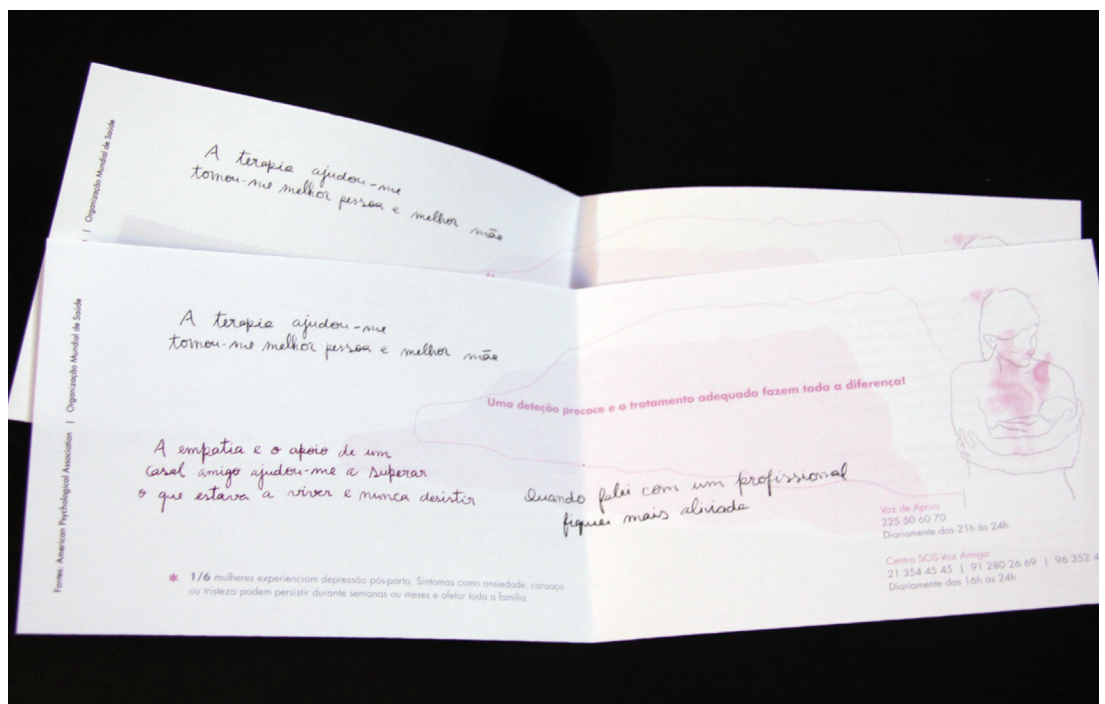 Organização Mundial de Saúde
A terapia ajudou-me
tornou-me melhor pessoa e melhor mãe
Fontes: American Psychological Association | Organização Mundial de Saúde
A terapia ajudou-me
tornou-me melhor pessoa e melhor mãe
Uma deteção precoce e o tratamento adequado fazem toda a diferença!
A empatia e o apoio de um
casal amigo ajudou-me a superar
o que estava a viver e nunca desistir
Quando falei com um profissional
fiquei mais aliviada
Voz de Apoio
225 50 60 70
Diariamente das 21h às 24h
Centro SOS-Voz Amiga
21 354 45 45 | 91 280 26 69 | 96 352 4
Diariamente das 16h às 24h
* 1/6 mulheres experienciam depressão pós-parto. Sintomas como ansiedade, cansaço
ou tristeza podem persistir durante semanas ou meses e afetar toda a família.